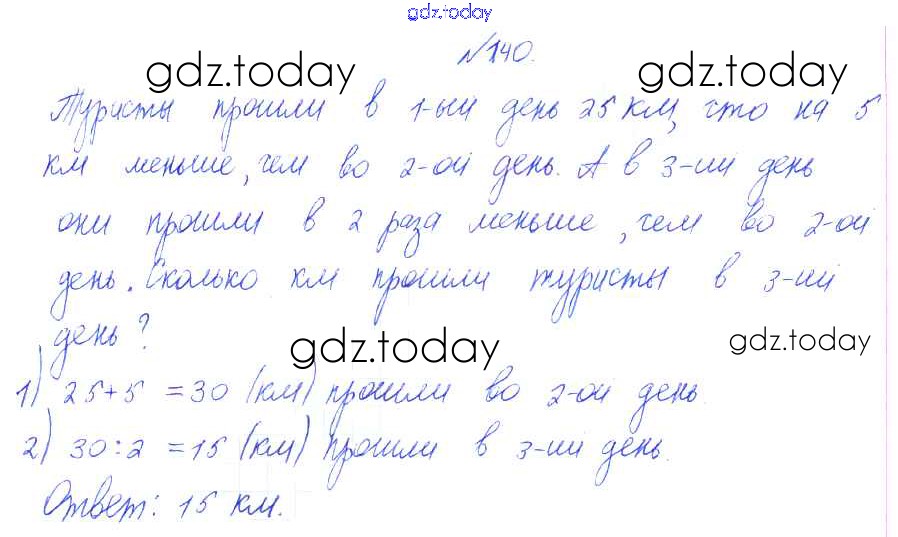 gdz.today
№140.
gdz.today gdz.today
Туристы прошли в 1-ый день 25 км, что на 5
км меньше, чем во 2-ой день. А в 3-ий день
они прошли в 2 раза меньше, чем во 2-ой
день. Сколько км прошли туристы в 3-ий
день?
gdz.today gdz.today
1) 25+5 =30 (км) прошли во 2-ой день.
2) 30:2 =15 (км) прошли в 3-ий день.
Ответ: 15 км.